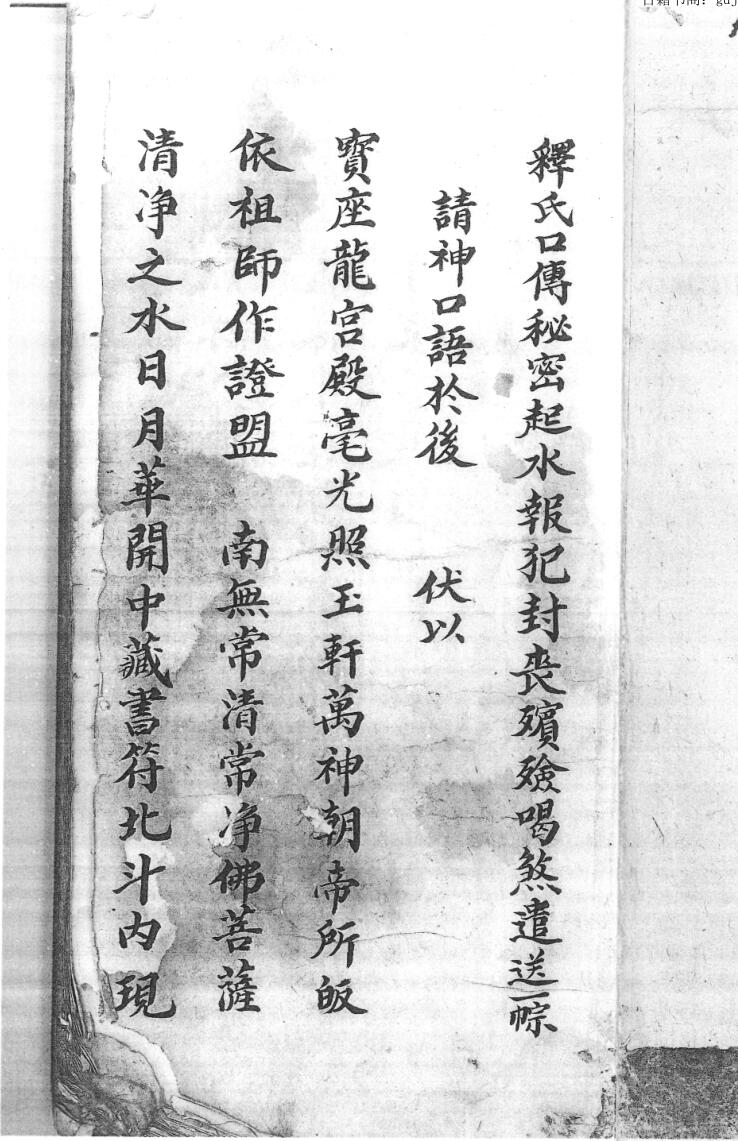 釋氏口傳秘密起水報犯封喪殯殮喝煞遣送一宗
請神口語於後　伏以
寳座龍宮殿毫光照玉軒萬神朝帝所皈
依祖師作證盟　南無常清常净佛菩薩
清净之水日月華開中藏書符北斗内現